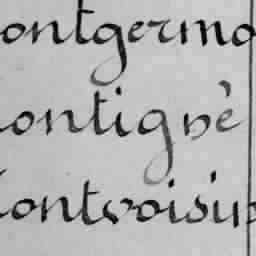 ontgermo
ontignè
ontvoisin